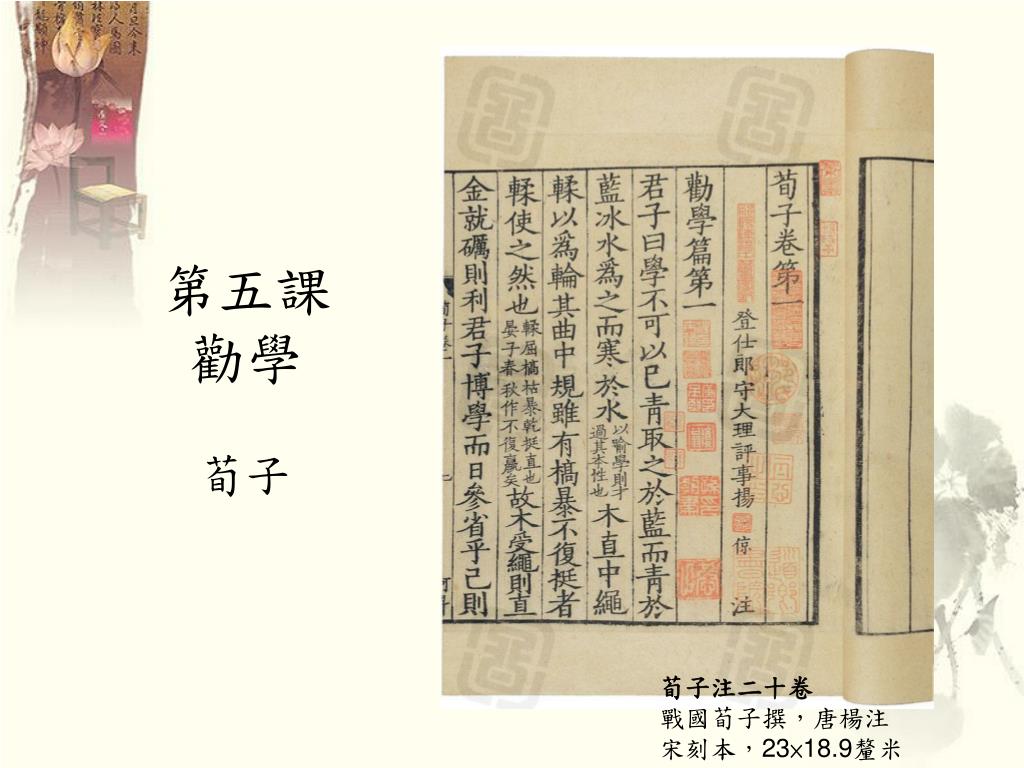 第五課
勸學
荀子
荀子卷第一
登仕郎守大理評事楊倞注
勸學篇第一
君子曰學不可以已青取之於藍而青於
藍冰水爲之而寒於水以喻學則才過其本性也木直中繩
輮以爲輪其曲中規雖有槁暴不復挺者
輮使之然也輮屈槁枯暴乾挺直也晏子春秋作不復贏矣故木受繩則直
金就礪則利君子博學而日參省乎己則
荀子注二十卷
戰國荀子撰，唐楊注
宋刻本，23x18.9釐米